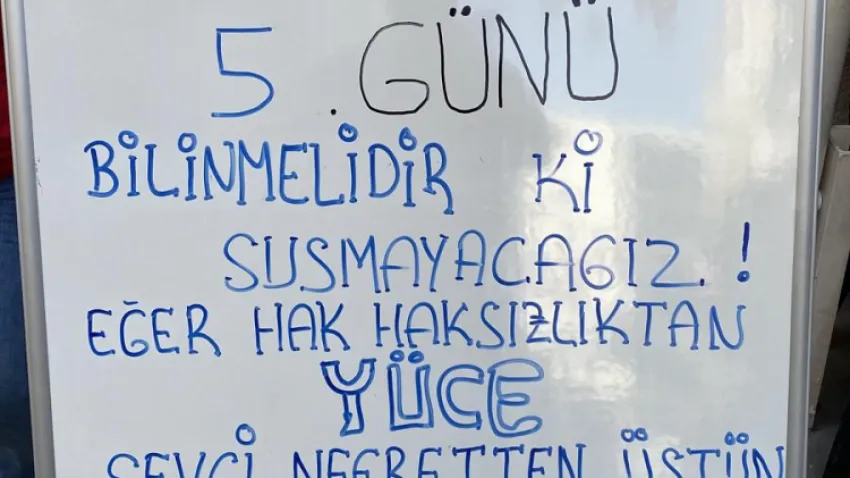 5.GÜNÜ
BİLİNMELİDİR Kİ
SUSMAYACAGIZ.!
EĞER HAK HAKSIZLIKTAN
YÜCE
SEVGİ NEFRETTEN ÜSTÜN